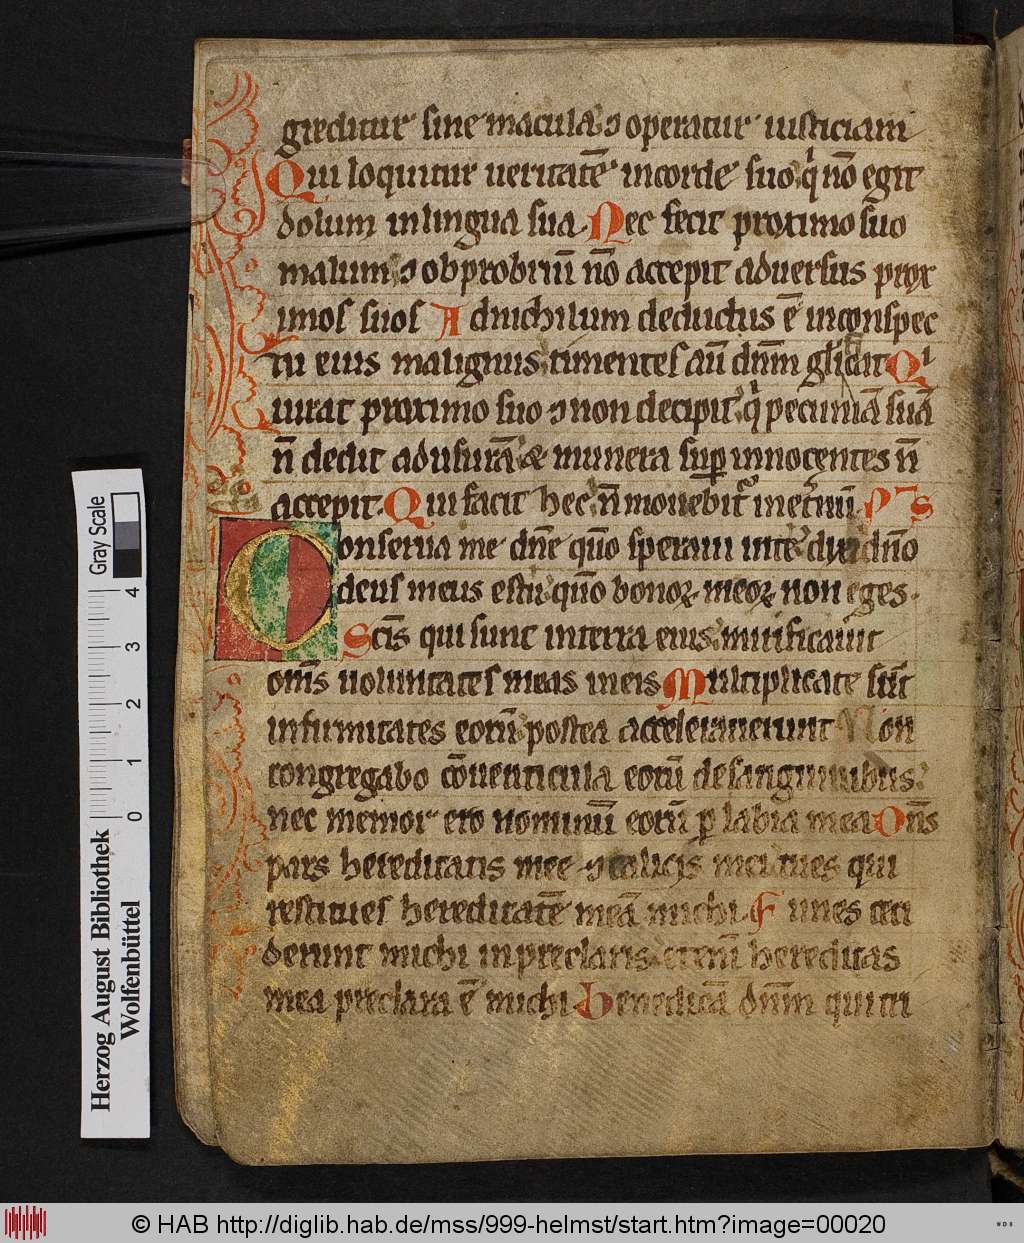 greditur sine macula ⁊ operatur iusticiam
Qui loquitur ueritatē incorde suo qͥ nō egit
dolum inlingua sua. Nec fecit proximo suo
malum ⁊ obprobriū nō accepit aduersus prox
imos suos Adnichilum deductus ē inconspec
tu eius malignus timentes aū dn̄m gl̄icat Qͥ
iurat proximo suo ⁊ non decipit qͥ pecuniā suā
n̄ dedit adusurā & munera suꝑ innocentes n̄
accepit. Qui facit hec n̄ mouebit᷑ inet̄nū. PS
Conserua me dn̄e qūo speraui inte dixi dn̄o
deus meus estu qūo bonoꝝ meoꝝ non eges.
Scīs qui sunt interra eius mirificauit
om̄s uoluntates meas ineis Multiplicate sūt
infirmitates eorū postea accelerauerunt Non
congregabo cōuenticula eorū desanguinibus.
nec memor ero nominū eorū ꝑ labia mea Dn̄s
pars hereditatis mee ⁊ calicis mei tues qui
restitues hereditatē meā michi. Funes ceci
derunt michi inpreclaris etenī hereditas
mea preclara ē michi Benedicā dn̄m qui tri
Gray Scale
0 1 2 3 4
Herzog August Bibliothek
Wolfenbüttel
© HAB http://diglib.hab.de/mss/999-helmst/start.htm?image=00020